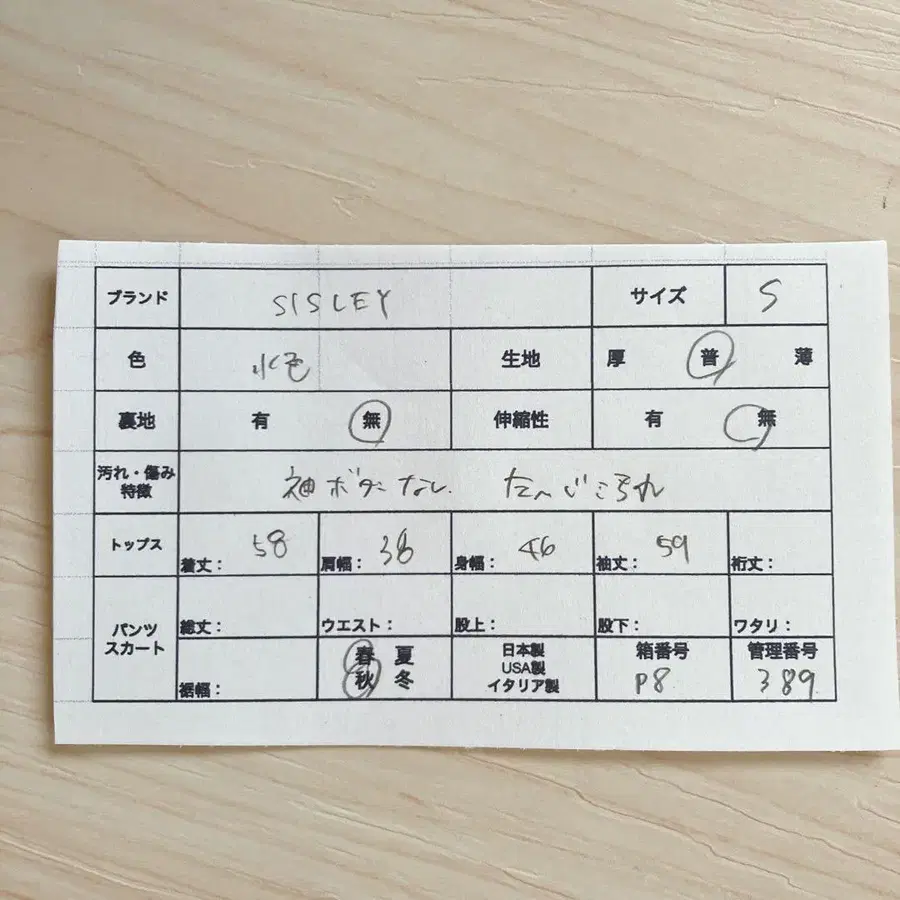 ブランド SISLEY サイズ S
色 水色 生地 厚 普 薄
裏地 有 無 伸縮性 有 無
汚れ・傷み
特徴 袖ボタンなし.
トップス 着丈： 58 肩幅： 38 身幅： 46 袖丈： 59 裄丈：
パンツ
スカート 総丈： ウエスト： 股上： 股下： ワタリ：
裾幅： 春 夏
秋 冬
日本製
USA製
イタリア製
箱番号
P8
管理番号
389